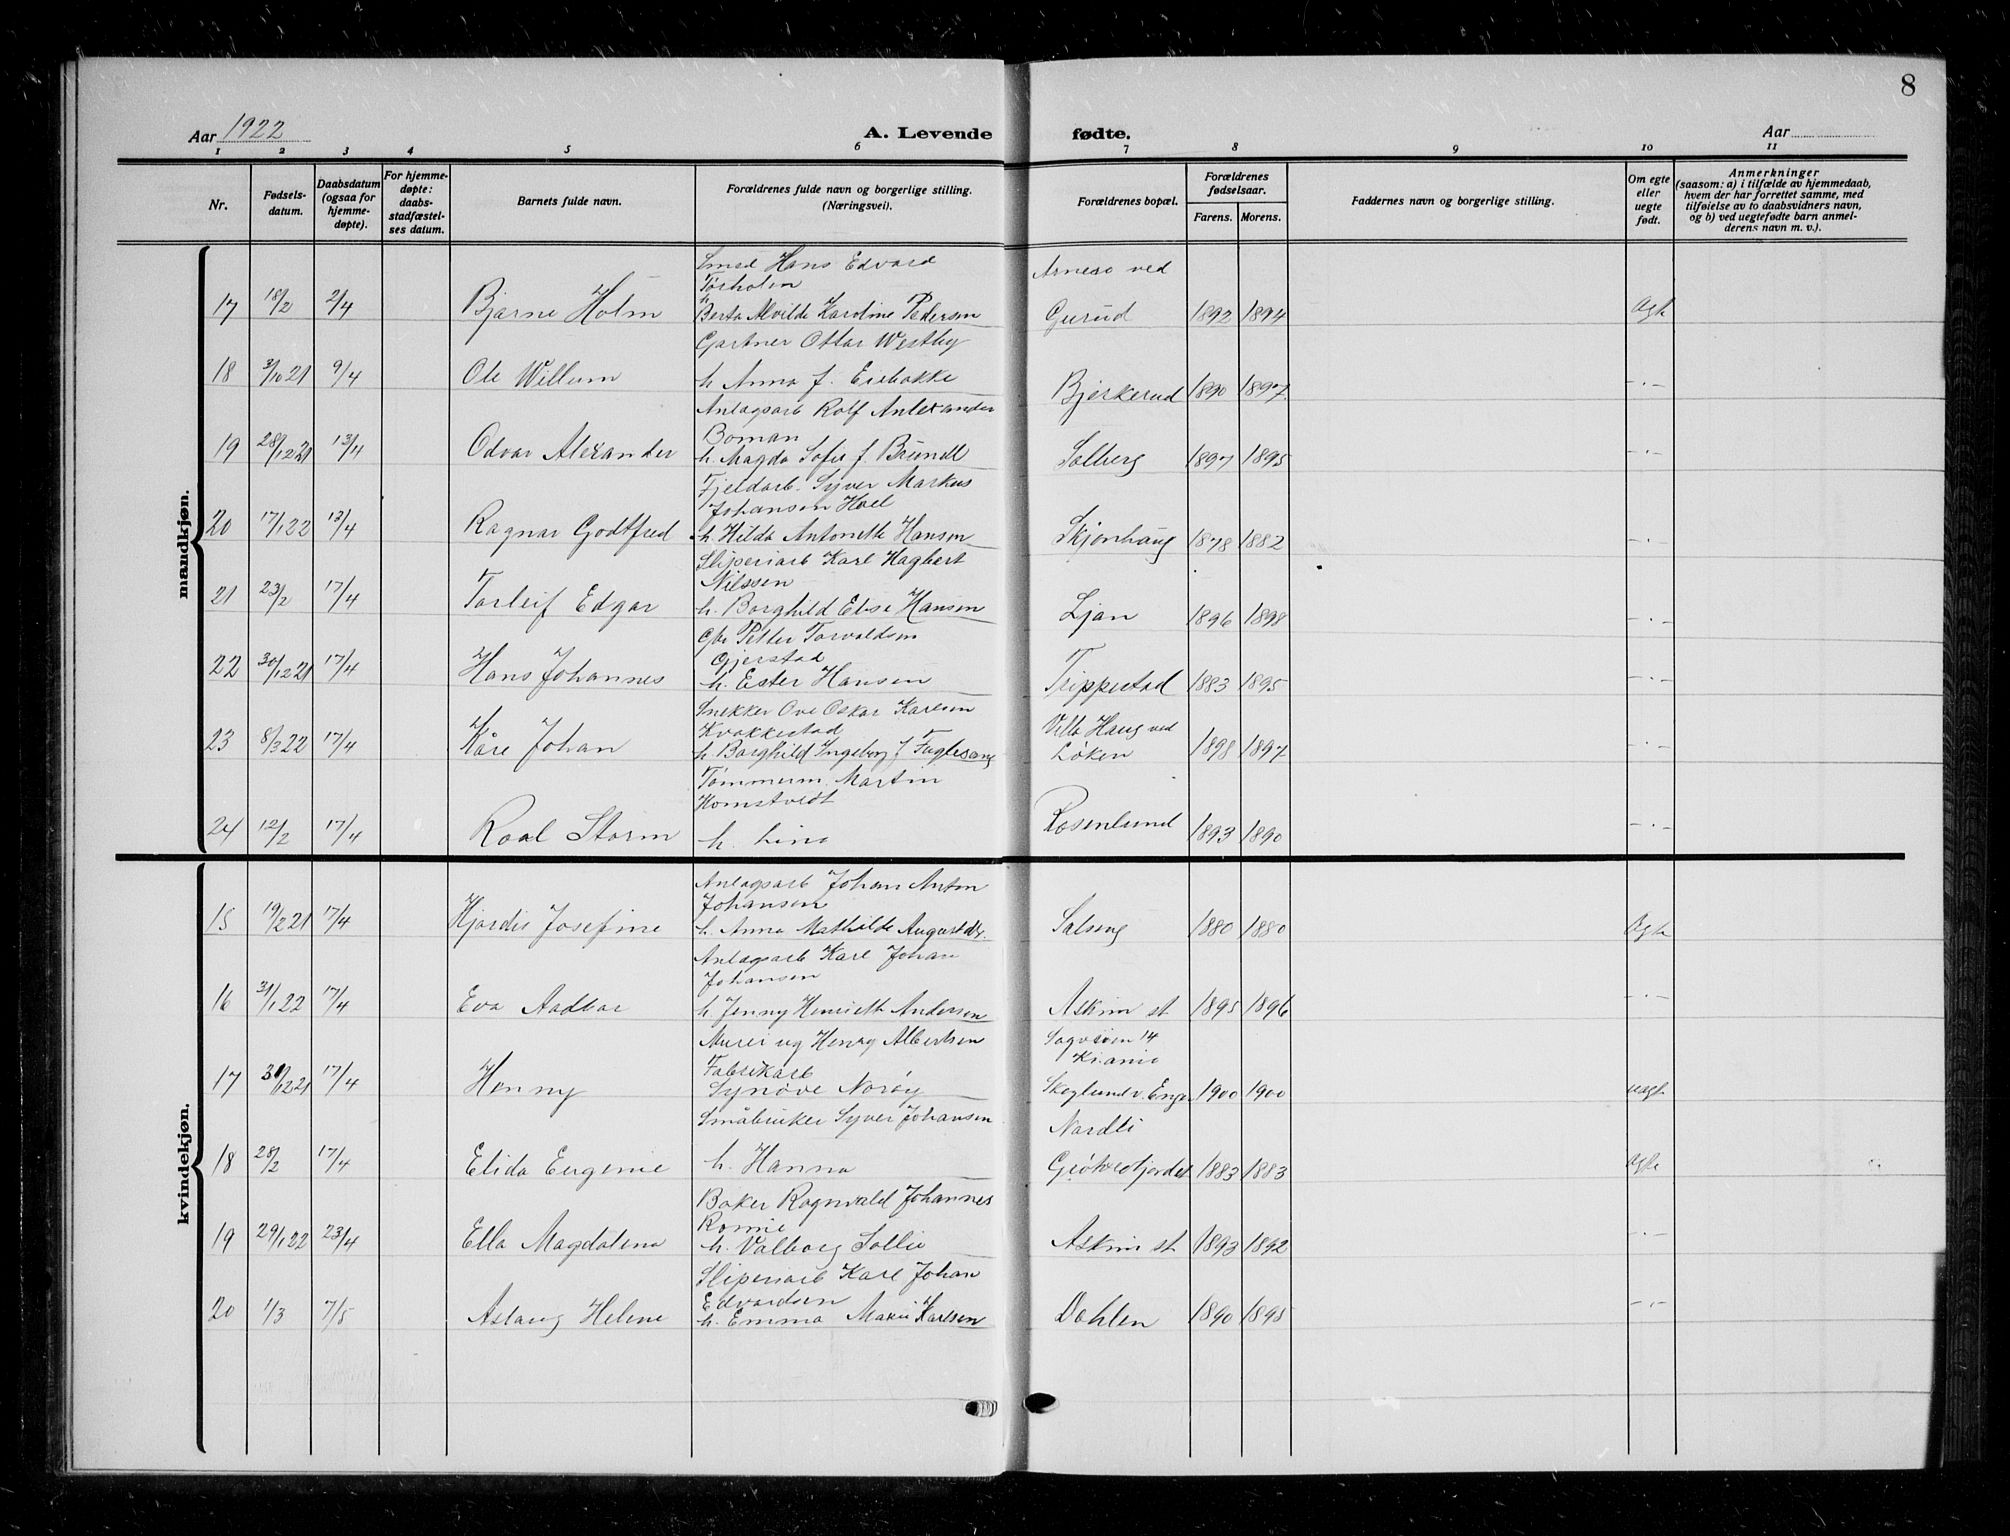 8
Aar 1922
A. Levende fødte.
Aar
1 2 3 4 5 6 7 8 9 10 11
Nr.
Fødsels-
datum.
Daabsdatum
(ogsaa for
hjemme-
døpte).
For hjemme-
døpte:
daabs-
stadfæstel-
ses datum.
Barnets fulde navn.
Forældrenes fulde navn og borgerlige stilling.
(Næringsvei).
Forældrenes bopæl.
Forældrenes
fødselsaar.
Farens. Morens.
Faddernes navn og borgerlige stilling.
Om egte
eller
uegte
født.
Anmerkninger
(saasom: a) i tilfælde av hjemmedaab,
hvem der har forrettet samme, med
tilføielse av to daabsvidners navn,
og b) ved uegtefødte barn anmel-
derens navn m. v.).
mandkjøn.
Smed Hans Edvard Arneso ved
Torholen
17 18/2 2/4 Bjarne Holm h Berta Alvilde Karoline Pedersen Gurud 1892 1894 Ægte
Gartner Ottar Westby
18 3/10 21 9/4 Ole Willum h. Anna f. Eriebakke Bjerkerud 1890 1897. -.-
Anlagsarb Rolf Anlexander
Boman
19 28/12 21 13/4 Odvar Alexander h. Magda Sofie f. Brundl Solberg 1897 1895 -.-
Fjeldarb. Syver Markus
Johansen Hoel
20 17/1 22 13/4 Ragnar Godtfred h Hilda Antonette Hansen Skjønhaug 1878 1882 -.-
Sliperiarb Karl Hagbert
Nilssen
21 23/2 17/4 Torleif Edgar h. Borghild Elise Hansen Ljan 1896 1898 -.-
Gbr Petter Torvaldsen
Gjerstad
22 30/12 21 17/4 Hans Johannes h. Ester Hansen Trippestad 1883 1895 -.-
Snekker Ove Oskar Karlsen Villa Haug ved
Kvakkestad
23 8/3 22 17/4 Kåre Johan h Borghild Ingeborg f Fuglesang Løken 1898 1897 -.-
Tømmerm. Martin
Homstvedt
24 12/2 17/4 Roal Storm h. Lina Rosenlund 1893 1890 -.-
kvindekjøn.
Anlagsarb Johan Anton
Johansen
15 19/2 21 17/4 Hjordis Josefine h. Anna Mathilde Solseng 1880 1880 Ægte
Anlagsarb Karl Johan
Johansen
16 31/1 22 17/4 Eva Aadbor h. Jenny Henriette Andersen Askim st 1895 1896 -.-
Murer ug Henry Albertsen 14
Fabrikarb Kr.ania
17 31/12 21 17/4 Henny Synøve Norøy Skoglund v. 1900 1900 uægte
Småbruker Syver Johansen Nordli
18 28/2 17/4 Elida Eugenie h. Hanna 1883 1883 ægte
Baker Ragnvald Johannes
Romie
19 29/1 22 23/4 Ella Magdalena h. Valborg Sollie Askim st 1893 1892 -.-
Sliperiarb Karl Johan
Edvardsen
20 1/3 7/5 Aslaug Helene h. Emma Marie Karlsen Dahlen 1890 1895 -.-